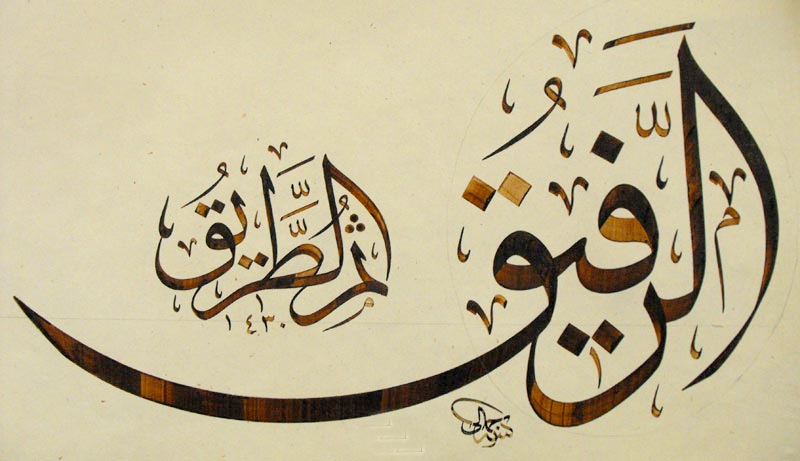 الرَّفيقُ
ثُمَّ الطَّريقُ
١٤٣٠